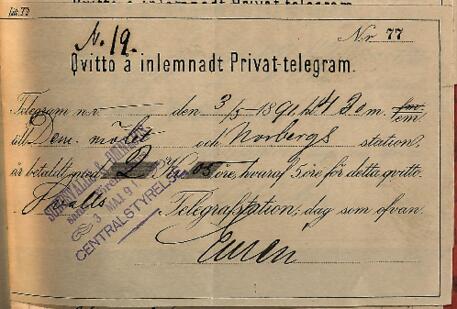 Qvitto å inlemnadt Privat-telegram.
Litt. T2
N. 19.
Nr 77
Qvitto å inlemnadt Privat-telegram.
Telegram n:r den 3/5 1891, kl. 4 30 m. fm. em.
till Dem. mötet och Norbergs station?
är betaldt med 2 Kr 05 öre, hvaraf 5 öre för detta qvitto.
Svalls Telegrafstation, dag som ofvan.
3 MAJ 91
CENTRALSTYRELSE
Eurén